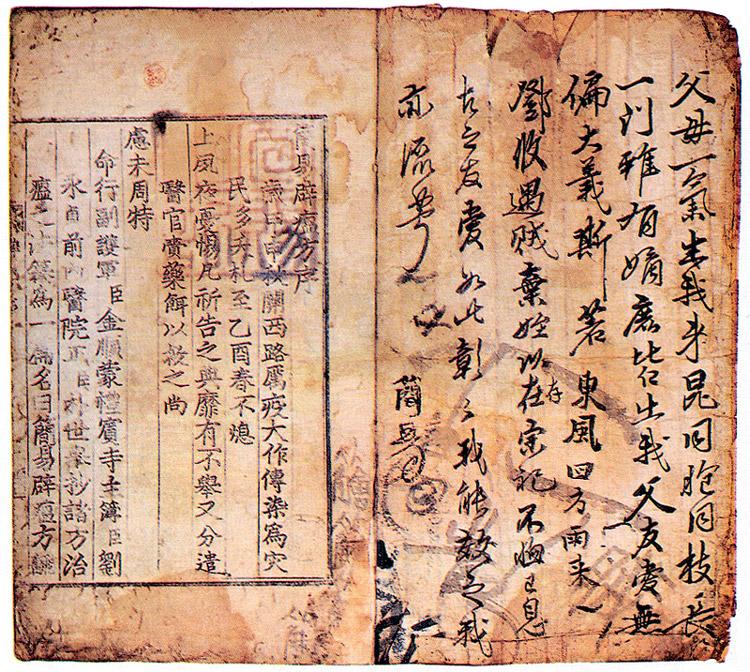 父母一氣生我來昆同胞同枝長
一門雖有嫡庶皆出我父友愛無
偏大義斯若東風四方雨來
鄧攸遇賊棄姪以在存宗記不悔
古之友愛如此彰之我能效之我
亦流芳
簡易
簡易辟瘟方序
歲甲申秋關西路厲疫大作傳染爲灾
民多夭札至乙酉春不熄
上夙夜憂惕凡祈告之典靡有不舉又分遣
醫官賫藥餌以救之尚
慮未周特
命行副護軍臣金順蒙禮賓寺主簿臣劉
永貞前內醫院正臣朴世擧抄諸方治
瘟之法纂爲一篇名曰簡易辟瘟方